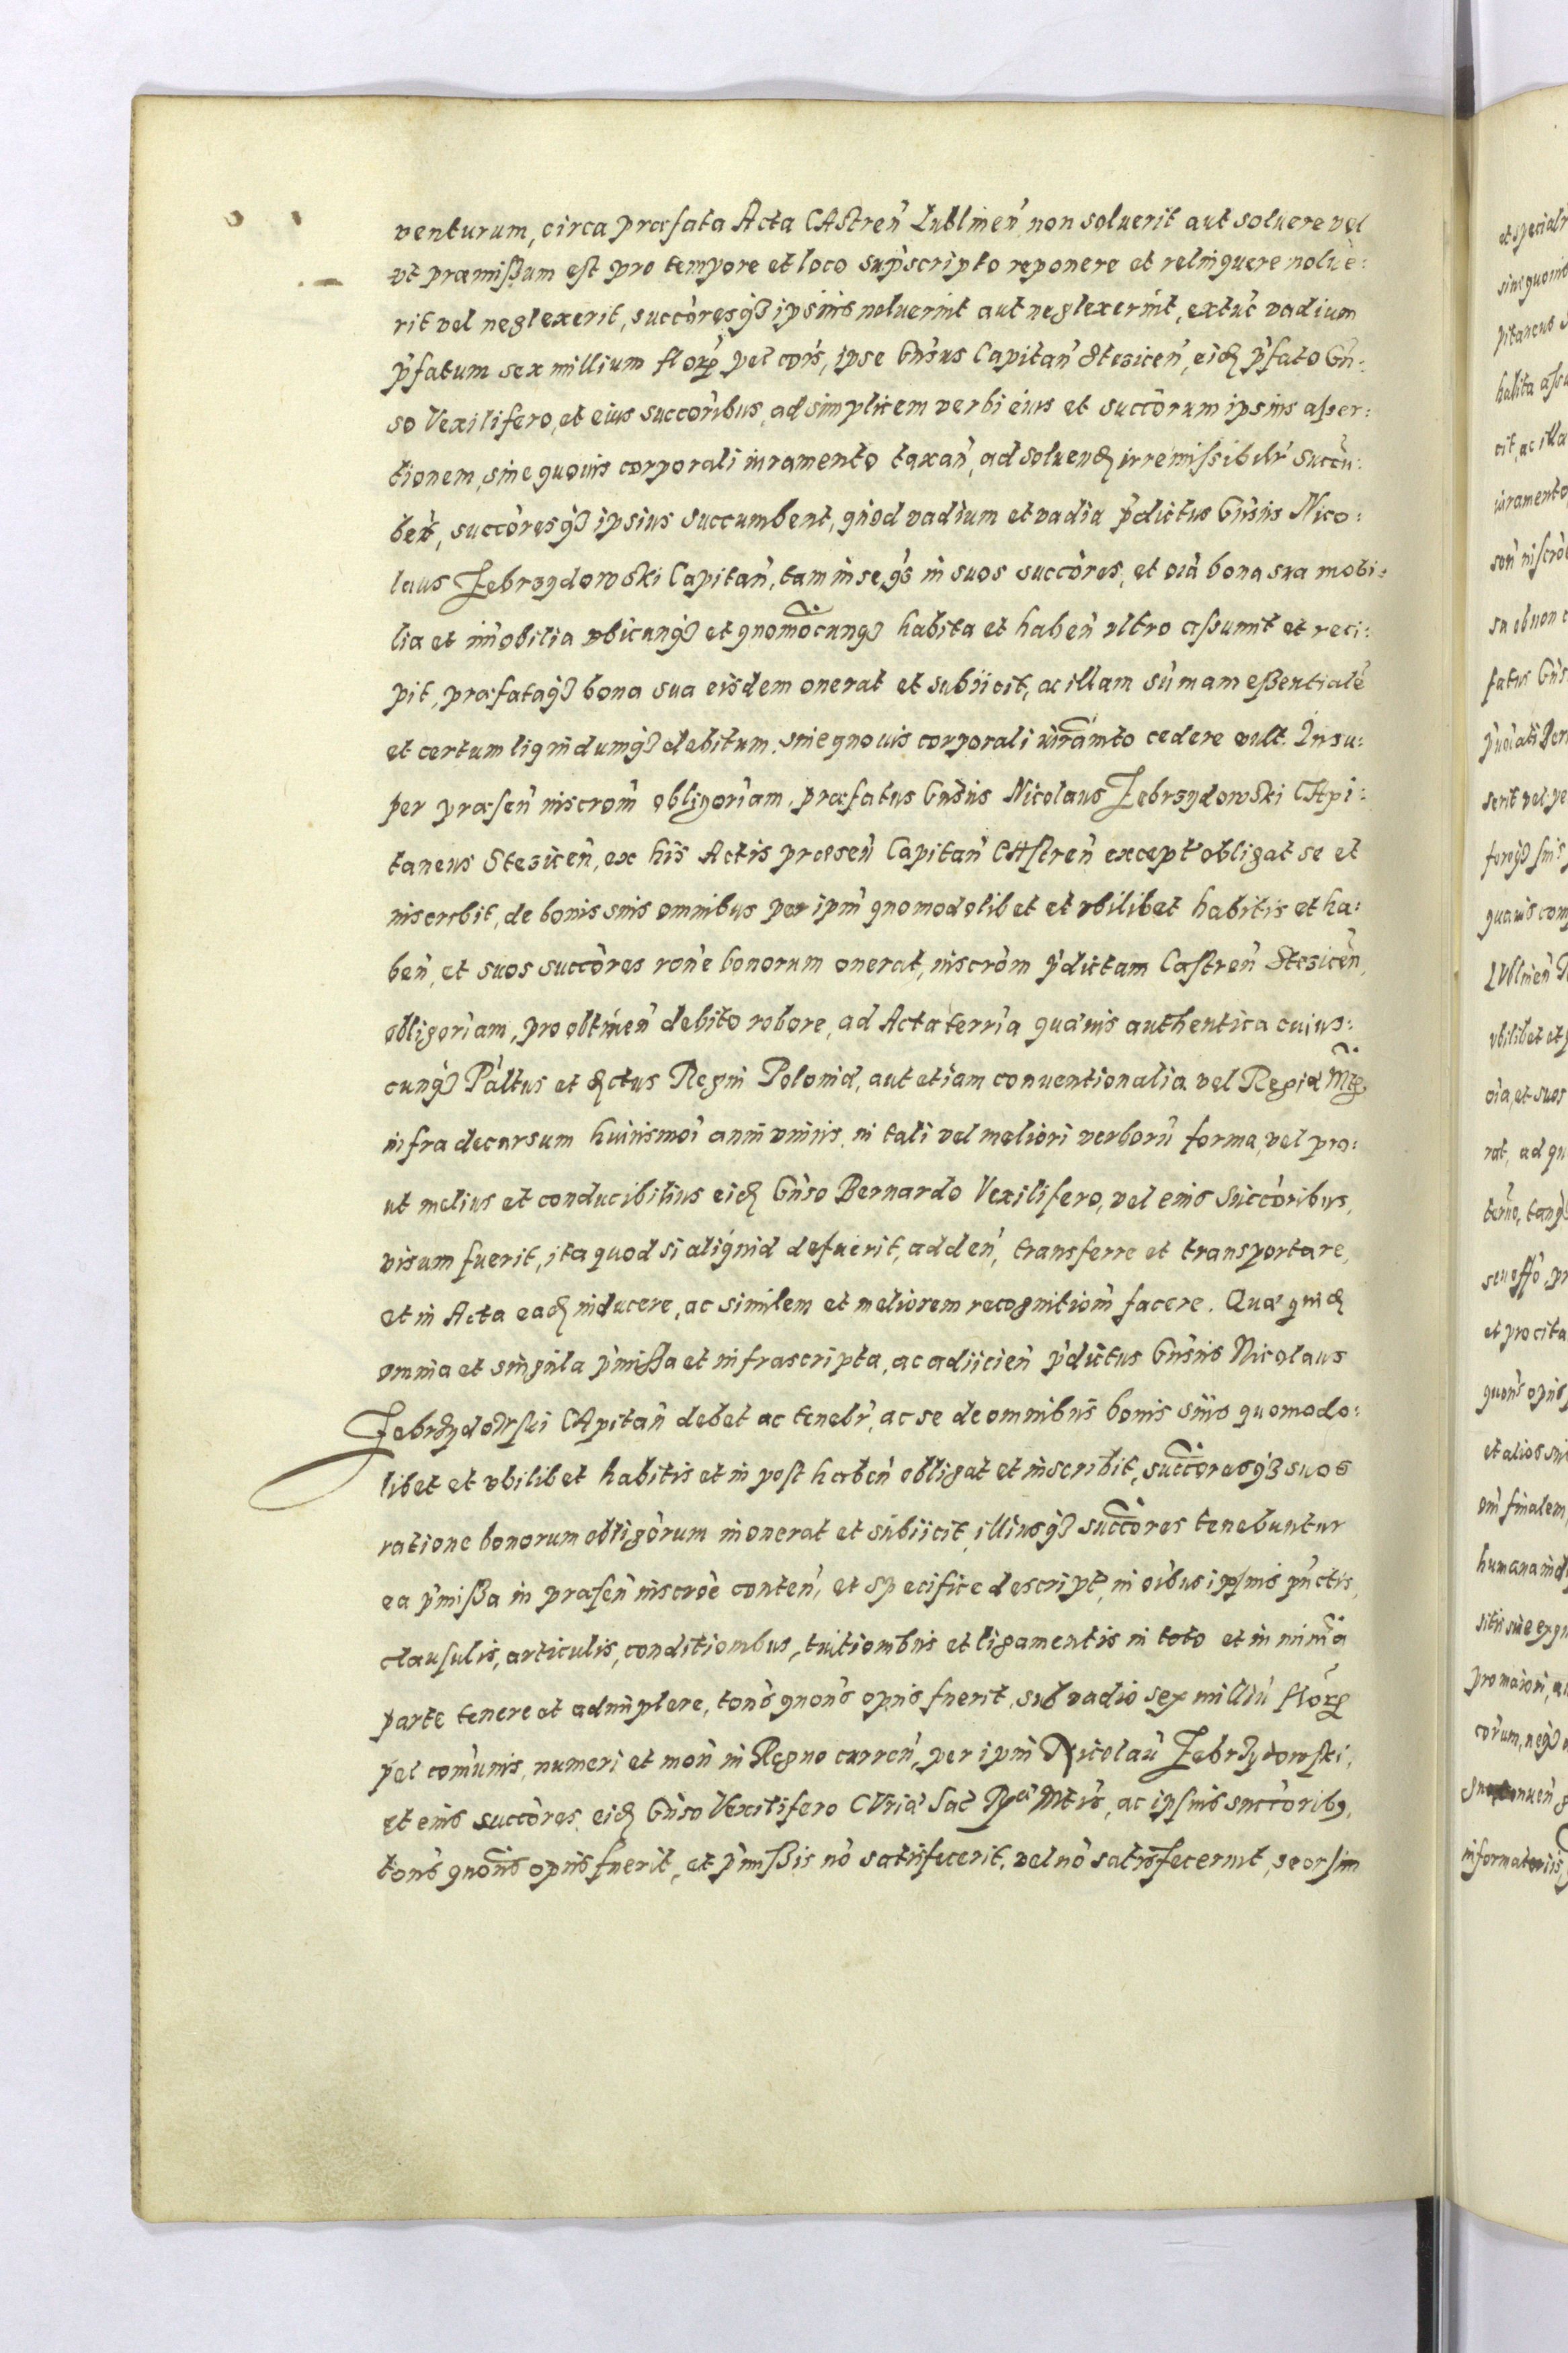 venturum, circa præfata Acta CAstreń Lublineń non soluerit aut soluere vel
vt præmißum est pro tempore et loco sup̃scripto reponere et relinquere nolue:
rit vel neglexerit, succòresq̃ ipsius noluerint aut neglexerint, extuć vadium
p̃fatum sex millium floɼ̃ pel cõis, ipse Gńsus Capitań Stezićeń, eiđ p̃fato Gń:
so Vexilifero, et eius succoribus, ad simplicem verbi eius et succòrum ipsius aßer:
tionem, sine quouis corporali iuramento taxań, ad soluenđ irremissibilr̃ succũ:
bet, succòresq̃ ipsius succumbent, quod vadium et vadia p̃dictus Gńsus Nico:
laus Zebrzydowski Capitań, tam in se q̃s in suos succòres, et oĩa bona sua mobi:
lia et im̃obilia vbicunq̃ et quomõcunq̃ habita et habeń vltro aßumit et reci:
pit, præfataq̃ bona sua eisdem onerat et subiicit, ac illam sum̃am eßentialẽ
et certum liquidumq̃ debitum, sine quouis corporali iuram̃to cedere vult. Insu:
per præseń inscrom̃ obligoriam, præfatus Gńsus Nicolaus Zebrzydowski CApi:
taneus Stezićeń, ex his Actis præseń Capitań CAstreń except obligat se et
inscribit, de bonis suis omnibus per ipm̃ quomodolibet et vbilibet habitis et ha:
beń, et suos succòres rõne bonorum onerat, inscrõm p̃dictam Castreń Stezićeń,
obligoriam, pro obtineń debito robore, ad Acta terrĩa quæuis authentica cuius:
cunq̃ Pałtus et đctus Regni Poloniæ, aut etiam conuentionalia vel Regiæ Mtis̃
infra decursum huiusmoĩ anni vnius, in tali vel meliori verborũ forma, vel pro:
ut melius et conducibilius eiđ Gńso Bernardo Vexilifero, vel eius succòribus,
visum fuerit, ita quod si aliquid defuerit, addeń, transferre et transportare,
et in Acta eađ inducere, ac similem et meliorem recognitiom̃ facere. Quæ quiđ
omnia et singula p̃mißa et infrascripta, ac adiicień p̃dictus Gńsus Nicolaus
Zebrzydowski CApitań debet ac tenebr̃, ac se de omnibus bonis suis quomodo:
libet et vbilibet habitis et in post habeń obligat et inscribit, succòresq̃ suos
ratione bonorum obligòrum inonerat et subiicit, illiusq̃ succòres tenebuntur
ea p̃mißa in præseń inscrõe conteń, et specifice descript, in oĩbus ipsius pũctis,
clausulis, articulis, conditionibus, tuitionibus et ligamentis in toto et in minĩa
parte tenere et adimplere, toñs quoñs opus fuerit, sub vadio sex milliũ floɼ̃
pel com̃unis, numeri et moń in Regno curreń, per ipm̃ Nicolaũ Zebrzydowski,
et eius succòres, eiđ Gńso Vexilifero CVriæ Sac̃ Rꝫæ Mtis̃, ac ipsius succòribꝫ,
toñs quoñs opus fuerit, et p̃mißis nõ satisfecerit, vel nõ satisfecerint, seorsim